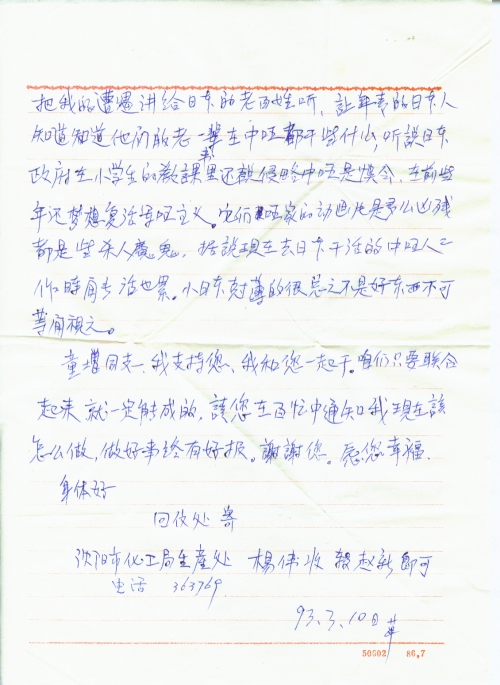 把我的遭遇讲给日本的老百姓听、让年青的日本人
知道知道他们的老一辈在中国都干些什么，听说日本
政府在小学生的教課书里还說侵略中国是误会、在前些
年还梦想复活军国主义。它们国家的动画片是多么凶残
都是些杀人魔鬼。据說现在去日本干活的中国人工
作時间长活也累。小日本刻薄的很总之不是好东西不可
等闲視之。
童增同志、我支持您、我和您一起干。咱们只要联合
起来就一定能成的，請您在百忙中通知我现在該
怎么做，做好事终有好报。謝謝您。愿您幸福、
身体好
回仪处寄
沈阳市化工局生産处 楊伟收 转赵新即可
电话 363769
93.3.10日
50502 86.7